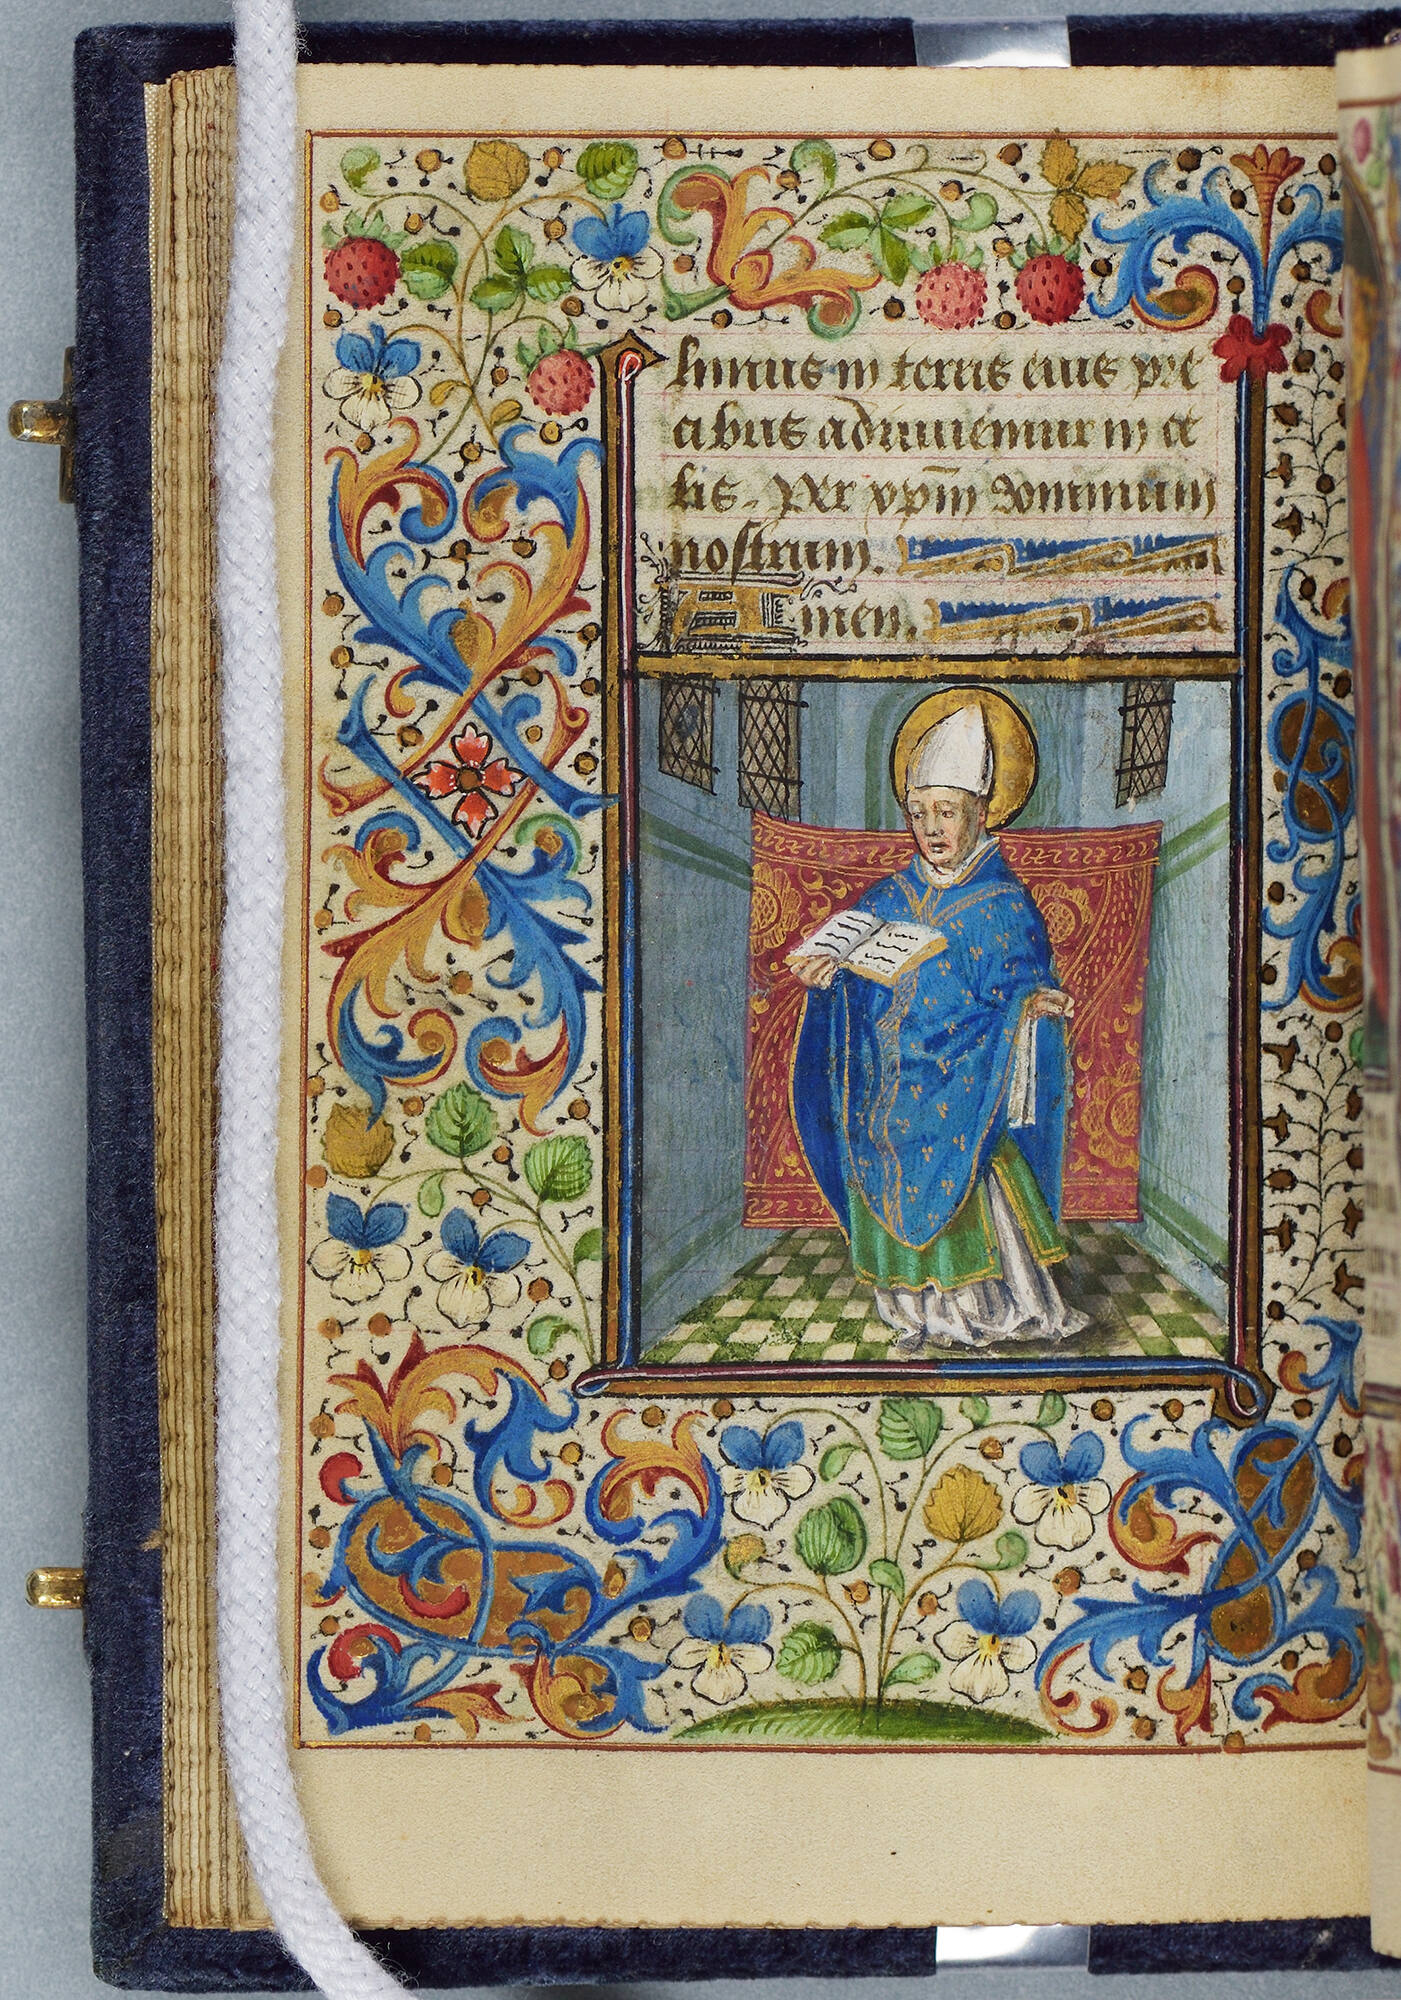 limus in terris eius pre
cibus adiuuemur in ce
lis. Per xp̄m dominum
nostrum.
Amen.